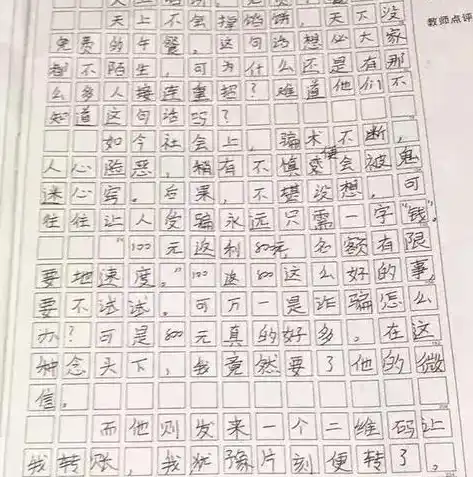 天上不会掉馅饼，天下没
免费的午餐。这句话想必大家
都不陌生，可为什么还是有那
么多人接连重招？难道他们不
知道这句话吗？
如今社会上，骗术不断，
人心险恶，稍有不慎便会被鬼
迷心窍。后果，不堪设想。可
往往让人受骗永远只需一字“钱”。
“100元返利800元，名额有限
要地速度。”100返800这么好的事，
要不试试。可万一是诈骗怎么
办？可是800元真的好多。在这
种念头下，我竟然要了他的微
信。
而他则发来一个二维码让
我转账，我犹豫片刻便转了。
教师点评